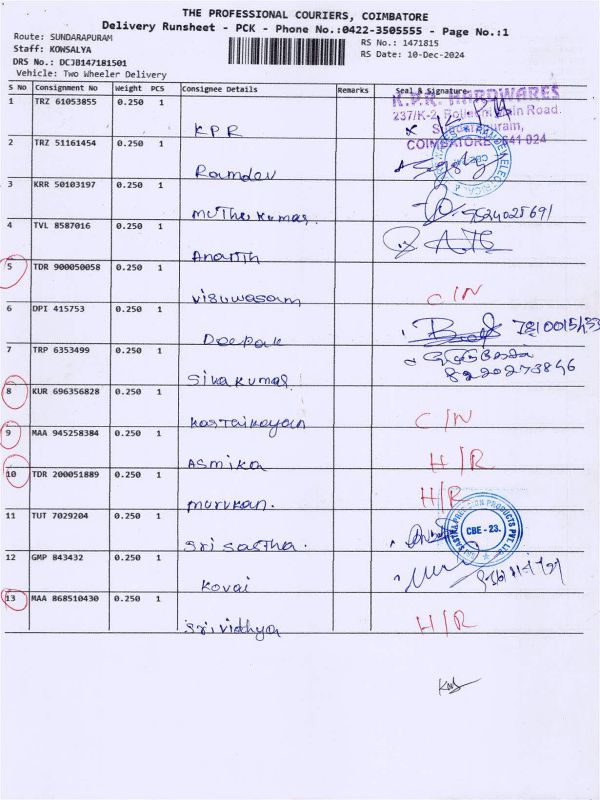 THE PROFESSIONAL COURIERS, COIMBATORE
Delivery Runsheet - PCK - Phone No.:0422-3505555 - Page No.:1
Route: SUNDARAPURAM
RS No.: 1471815
Staff: KOWSALYA
RS Date: 10-Dec-2024
DRS No.: DCJB147181501
Vehicle: Two Wheeler Delivery
S No Consignment No Weight PCS Consignee Details Remarks Seal & Signature
K.P.R. HARDWARES
1 TRZ 61053855 0.250 1 KPR
237/K-2, Main Road.
COIMBATORE 641 024
2 TRZ 51161454 0.250 1 Ramdev
3 KRR 50103197 0.250 1 muthu kumar. 9524025691
4 TVL 8587016 0.250 1 Ananth
5 TDR 900050058 0.250 1 Visuwasam C/N
6 DPI 415753 0.250 1 Deepak
7 TRP 6353499 0.250 1 Sivakumar 8220273846
8 KUR 696356828 0.250 1 C/N
9 MAA 945258384 0.250 1 Asmika H/R
10 TDR 200051889 0.250 1 murukan. H/R
11 TUT 7029204 0.250 1 Sri Sastha. SRI SASTHA PRECISION PRODUCTS PVT. LTD. CBE - 23.
12 GMP 843432 0.250 1 Kovai
13 MAA 868510430 0.250 1 Sri vidhya H/R